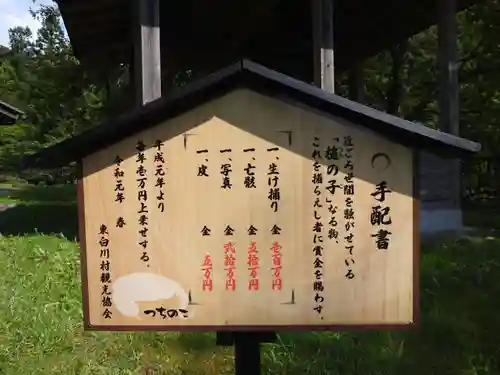 手配書
近ごろせ間を騒がせている
「槌の子」なる物、
これを捕らえし者に賞金を賜わす。
一、生け捕り 金 壱百万円
一、亡骸 金 五拾万円
一、写真 金 弐拾万円
一、皮 金 五万円
平成元年より
毎年壱万円上乗せする。
令和元年 春
東白川村観光協会
つちのこ